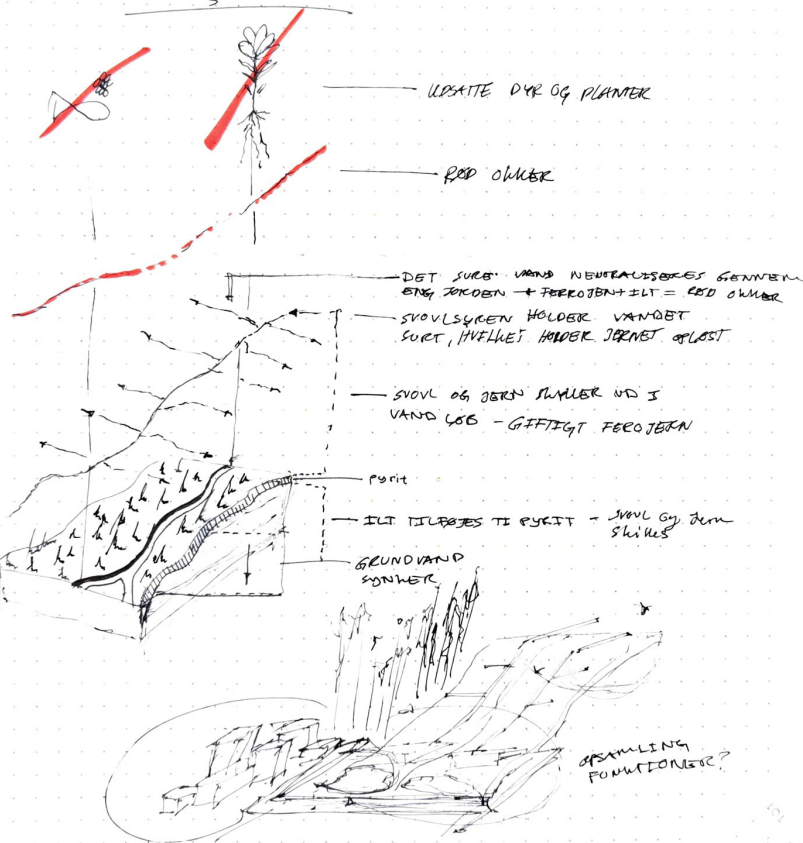 UDSATTE DYR OG PLANTER
RØD OKKER
DET SURE VAND NEUTRALISERES GENNEM
ENG JORDEN + FERROJERN + ILT = RØD OKKER
SVOVLSYREN HOLDER VANDET
SURT, HVILKET HOLDER JERNET OPLØST
SVOVL OG JERN SKYLLER UD I
VANDLØB - GIFTIGT FEROJERN
Pyrit
ILT TILFØJES TI PYRIT - Svovl og Jern
Skilles
GRUNDVAND
SYNKER
OPSAMLING
FUNKTIONER?